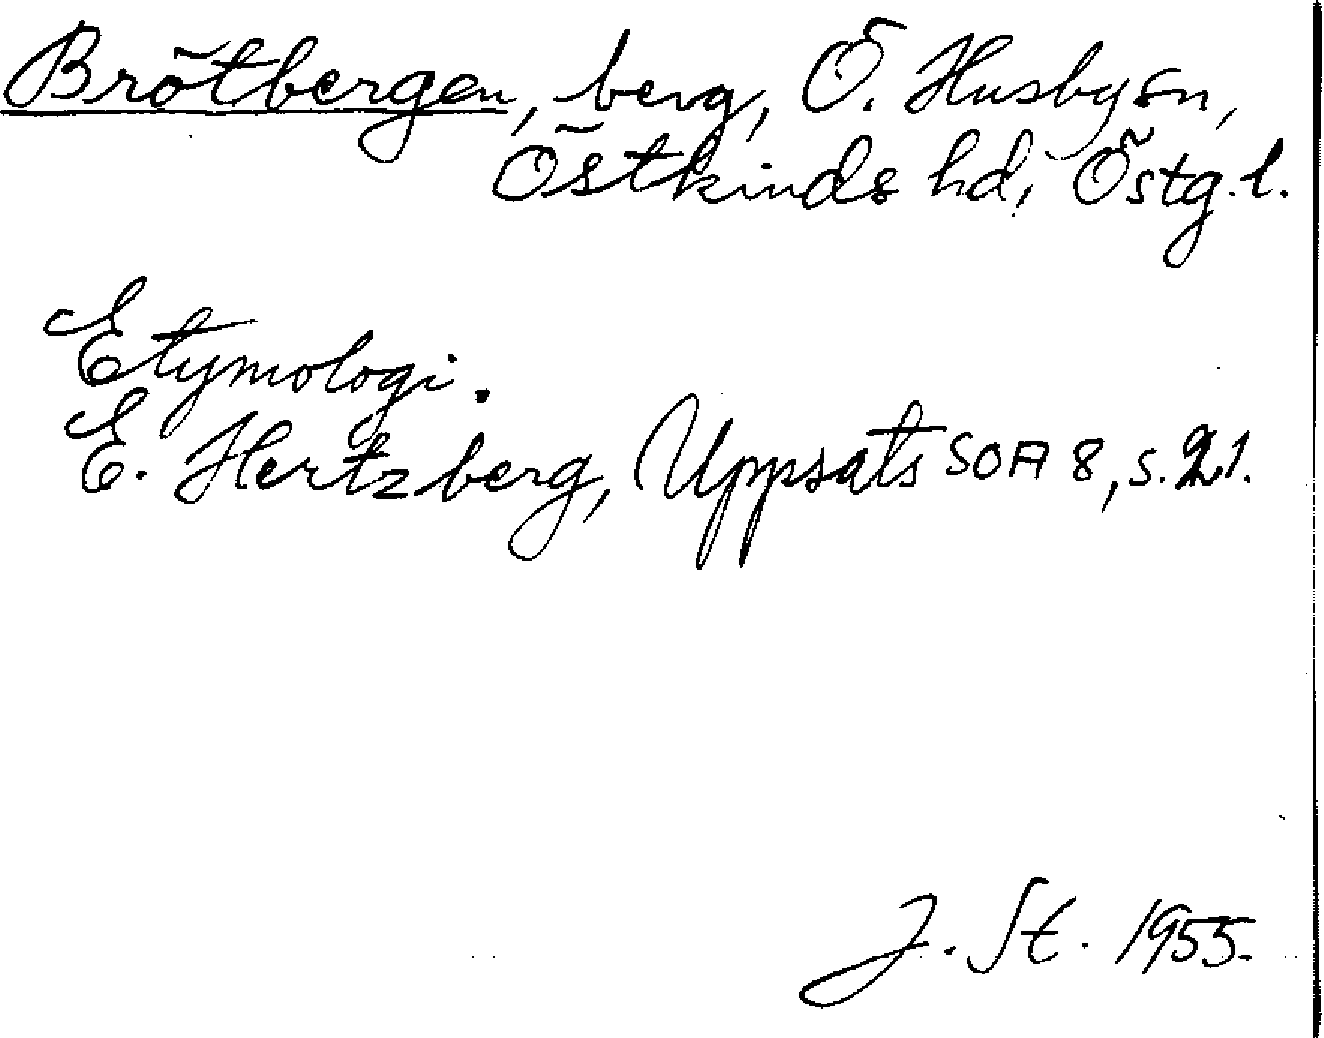 Brötbergen, berg, Ö. Husby sn,
Östkinds hd, Östg. l.
Etymologi.
E. Hertzberg, Uppsats SOA 8, s. 21.
J. St. 1955.